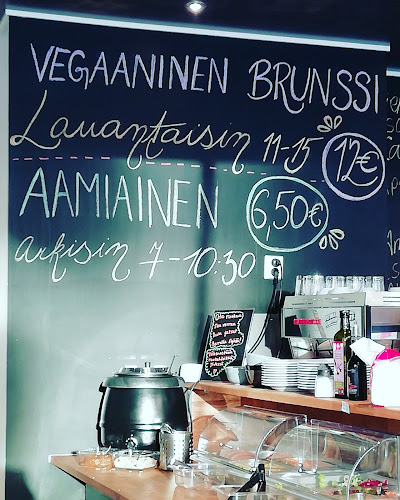 VEGAANINEN BRUNSSI
Lauantaisin 11-15 12€
AAMIAINEN 6,50€
arkisin 7-10:30